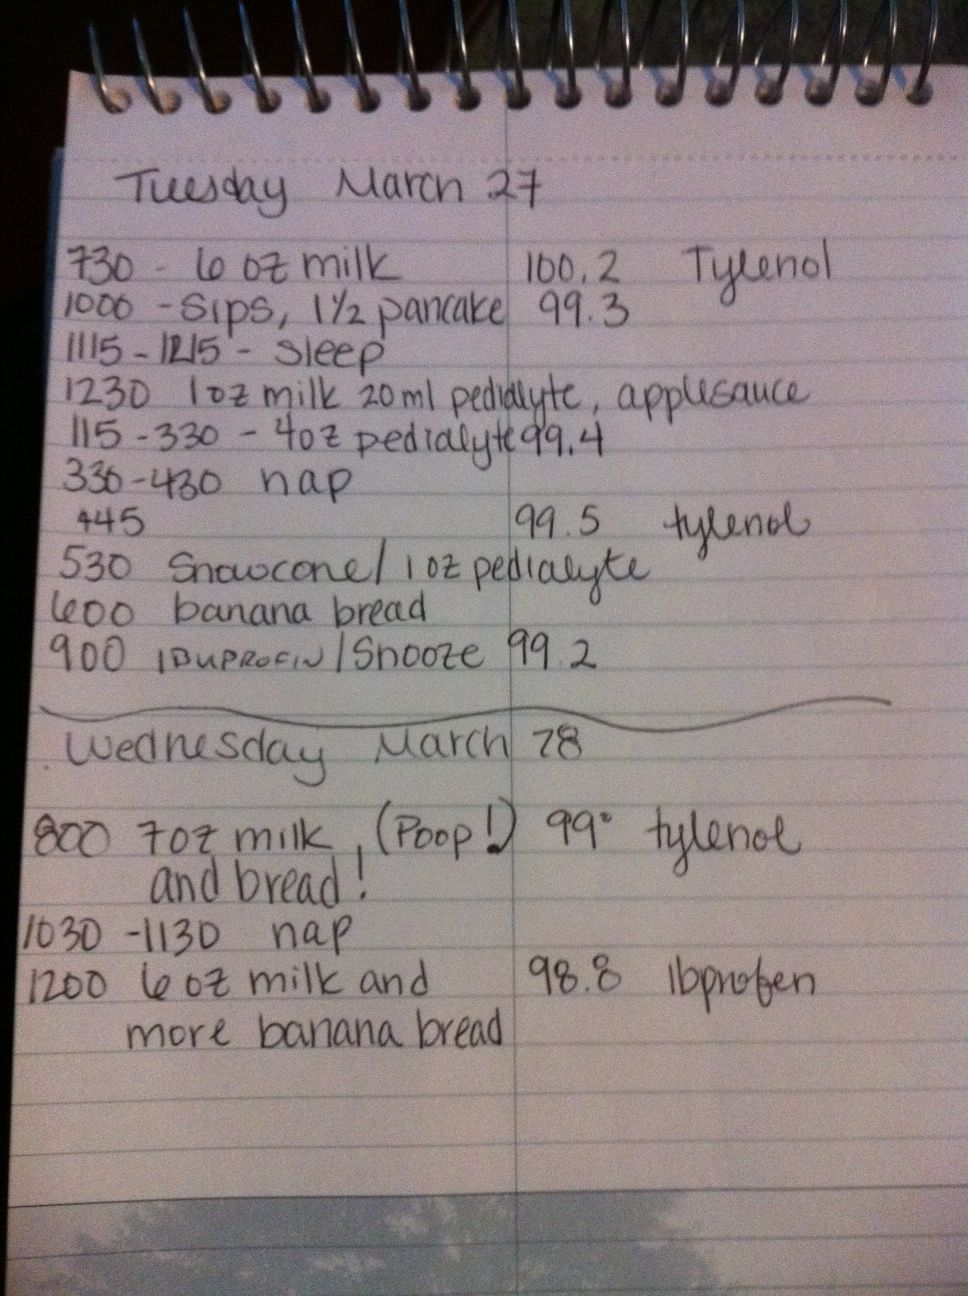 Tuesday March 27
730 - 6 oz milk 100.2 Tylenol
1000 - Sips, 1½ pancake 99.3
1115 - 1215 - sleep
1230 1oz milk 20ml pedialyte, applesauce
115 - 330 - 4oz pedialyte 99.4
330 - 430 nap
445 99.5 tylenol
530 Snowcone / 1 oz pedialyte
600 banana bread
900 IBUPROFIN / Snooze 99.2
Wednesday March 28
800 7oz milk, (Poop!) 99° tylenol
and bread!
1030 - 1130 nap
1200 6 oz milk and 98.8 Ibprofen
more banana bread